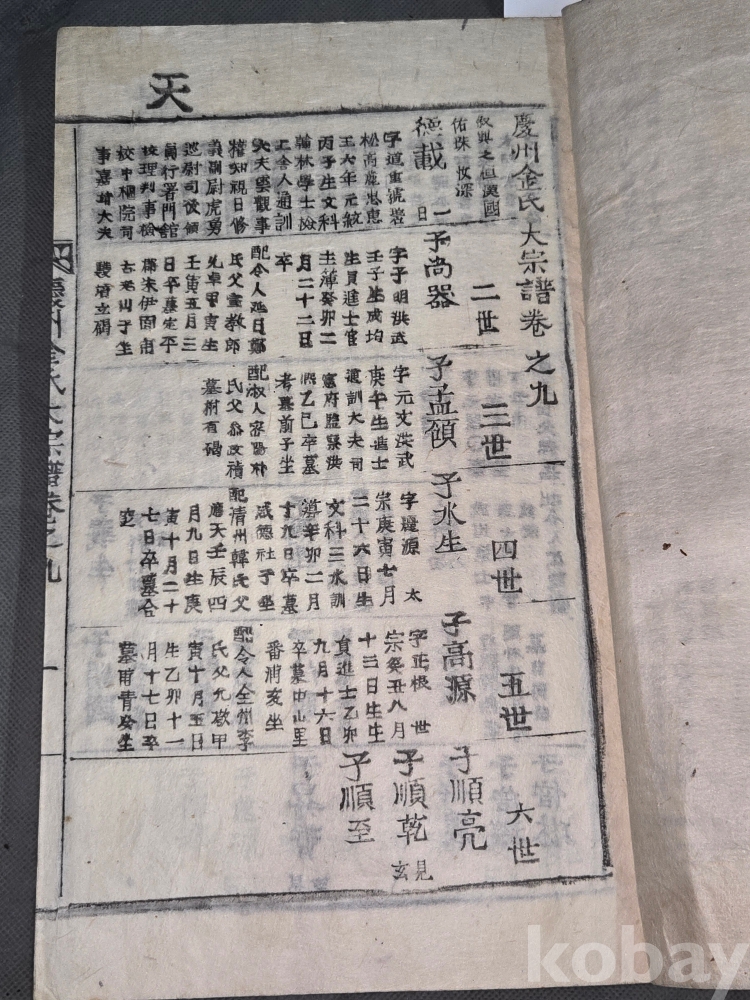 天
慶州金氏大宗譜卷之九
叙典之恒漢國
佑珠 汝深
德載
一日
字道重號
松高麗忠惠
王六年元統
丙子生文科
翰林學士檢
上舍人通訓
大夫雲觀事
精知視日修
義副尉虎勇
巡尉司領
員行署門館
校理判事檢
校中樞院司
事嘉靖大夫
二世
子尚器
字子明洪武
壬子生成均
生員進士官
主簿癸卯二
月二十二日
卒
配令人延日鄭
氏父教郎
允卓甲寅生
壬寅五月三
日卒墓定平
朱伊面南
山子坐
雙墳立碣
三世
子孟碩
字元文洪武
庚午生進士
通訓大夫司
憲府監察洪
熙乙巳卒墓
考墓前子坐
配淑人密陽朴
氏父參政積
墓祔有碣
四世
子水生
字 源 太
宗庚寅七月
二十六日生
文科三水訓
導辛卯二月
十九日卒墓
咸德社子坐
配清州韓氏父
應天壬辰四
月九日生庚
寅十月二十
七日卒墓合
窆
五世
子高源
字正根 世
宗癸丑八月
十三日生生
員進士乙卯
九月十六日
卒墓中山里
番浦亥坐
配令人全州李
氏父允敬甲
寅十月五日
生乙卯十一
月十七日卒
墓甫青安坐
六世
子順亮
子順乾
見玄
子順至
慶州金氏大宗譜卷之九
一
kobay